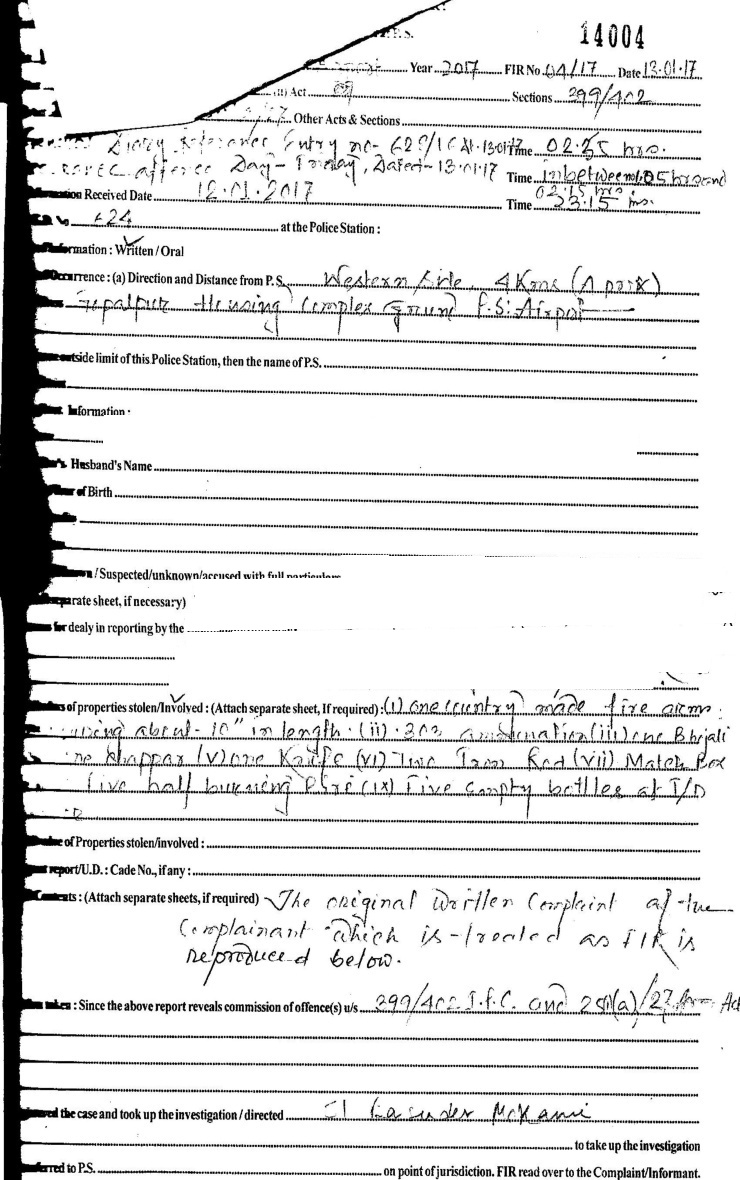 P.S.
14004
Year 2017 FIR No 04/17 Date 13.01.17
(ii) Act Sections 399/402
Other Acts & Sections
Diary Reference Entry no- 628/16 At. 13.01.17 Time 02.25 hrs.
offence Day- Friday, Dated- 13.01.17 Time inbetween 01.05 hrs and
02.15 hrs.
Received Date 12.01.2017 Time 23.15 hrs.
624 at the Police Station :
Information : Written / Oral
Occurrence : (a) Direction and Distance from P.S. Western side, 4 Kms (Aprox)
Gopalpur Housing Complex Ground P.S: Airport
outside limit of this Police Station, then the name of P.S.
Information :
Husband's Name
of Birth
/ Suspected/unknown/accused with full particulars
separate sheet, if necessary)
for dealy in reporting by the
of properties stolen/Involved : (Attach separate sheet, If required) : (i) one country made fire arms
about- 10" in length. (ii) .303 ammunation (iii) one Bhojali
(v) one Knife (vi) Two Iron Rod (vii) Match Box
five half burning (ix) Five empty bottles at I/D
of Properties stolen/involved :
report/U.D. : Cade No., if any :
Contents : (Attach separate sheets, if required) The original written Complaint of the
Complainant which is treated as FIR is
reproduced below.
taken : Since the above report reveals commission of offence(s) u/s 399/402 I.P.C. and 25(1)(a)/27 Arms Act
the case and took up the investigation / directed SI
to take up the investigation
referred to P.S. on point of jurisdiction. FIR read over to the Complaint/Informant.